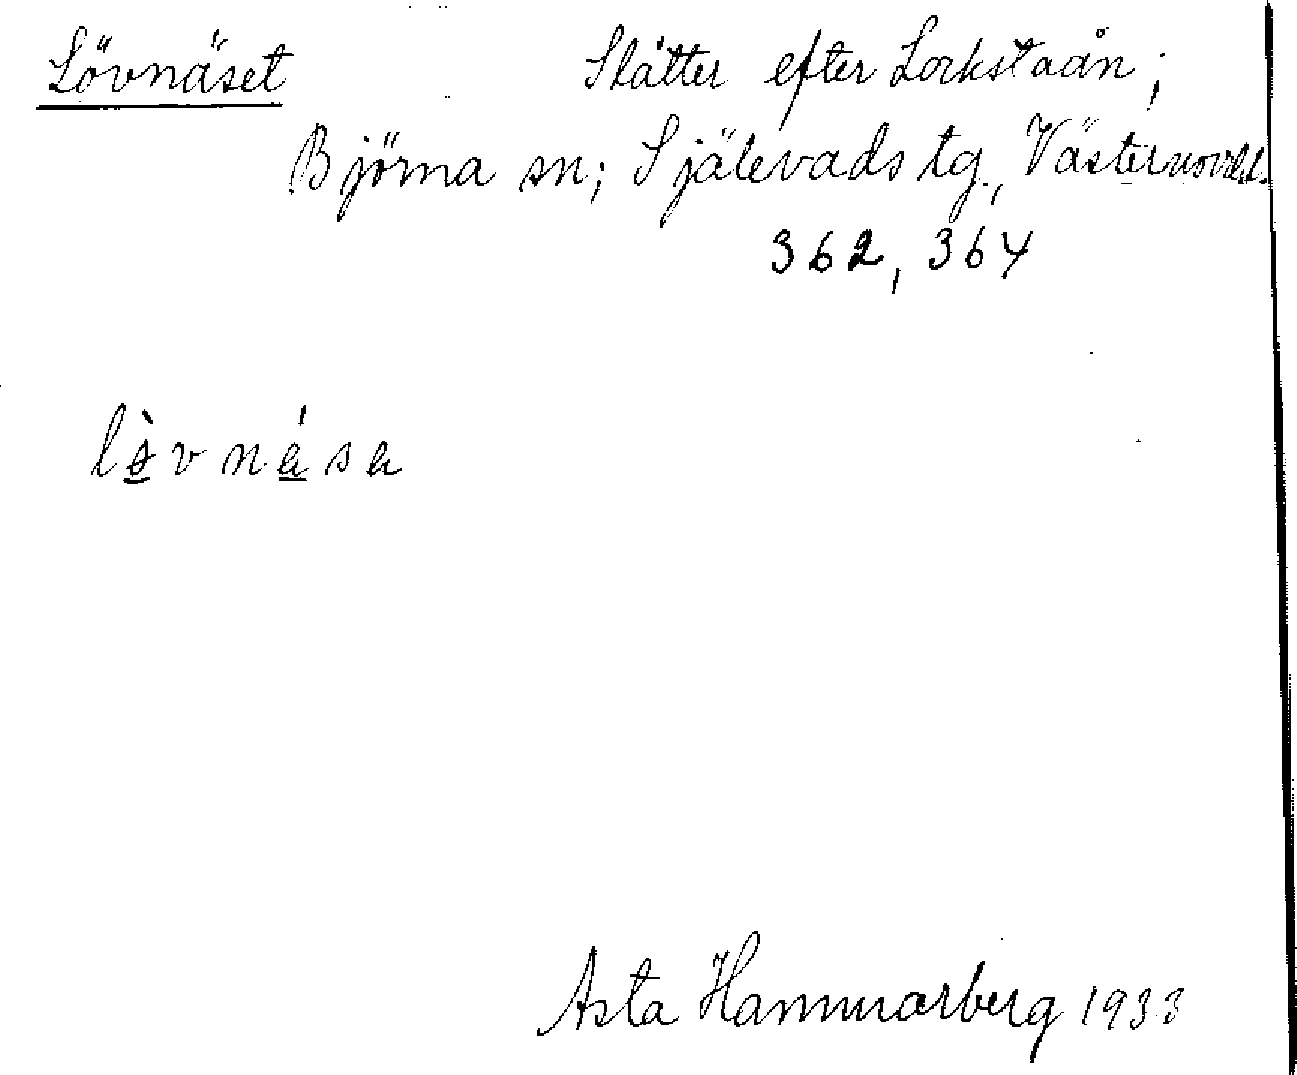 Lövnäset Slåtter efter Lockstaån;
Björna sn; Själevads tg., Västernorrl.l.
362, 364
lø̀vnása
Asta Hammarberg 1933